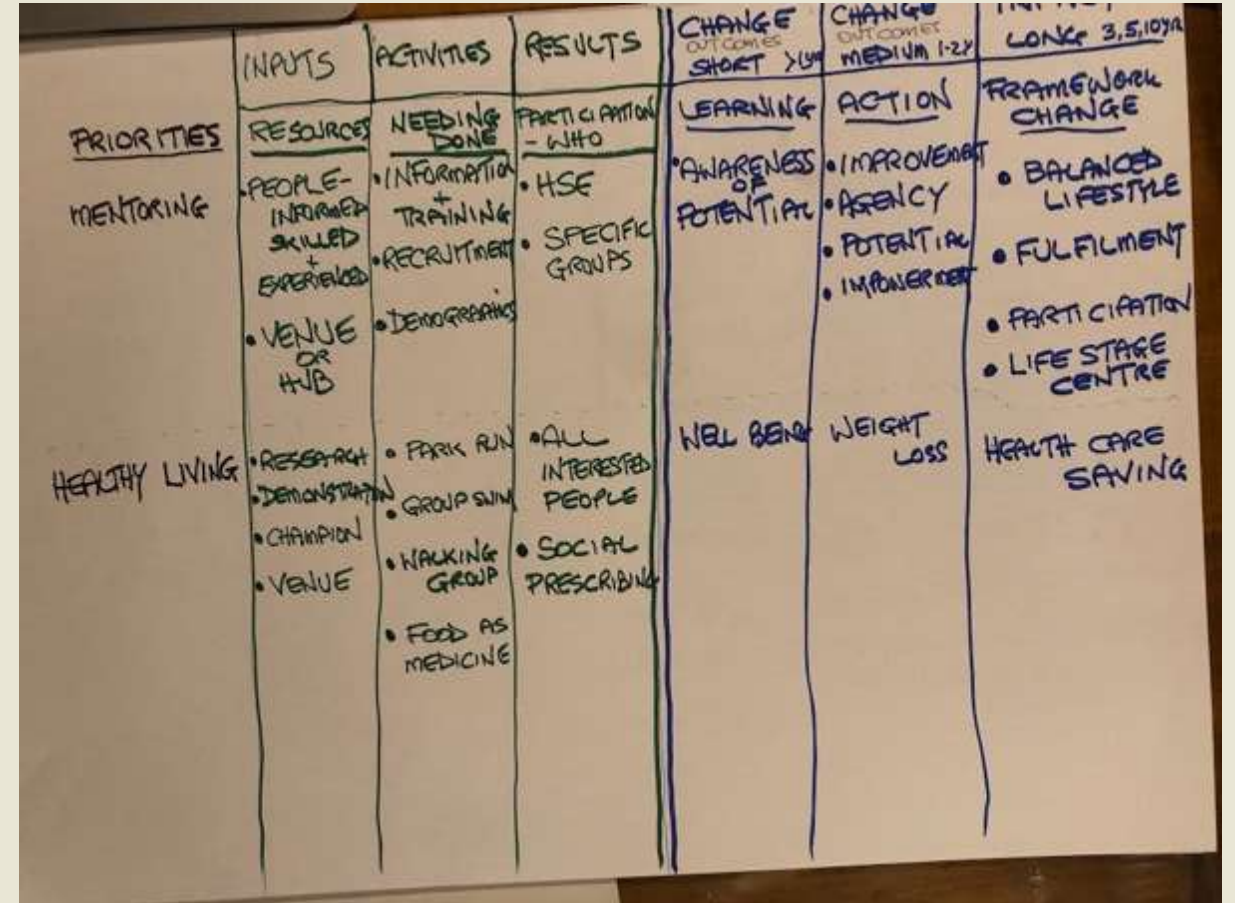 INPUTS
ACTIVITIES
RESULTS
CHANGE
OUTCOMES
SHORT >1yr
CHANGE
OUTCOMES
MEDIUM 1-2Y
LONG 3,5,10YR
PRIORITIES
RESOURCES
NEEDING
DONE
PARTICIPATION
- WHO
LEARNING
ACTION
FRAMEWORK
CHANGE
MENTORING
• PEOPLE-
INFORMED
SKILLED
+
EXPERIENCED
• VENUE
OR
HUB
• INFORMATION
+
TRAINING
• RECRUITMENT
• DEMOGRAPHICS
• HSE
• SPECIFIC
GROUPS
• AWARENESS
OF
POTENTIAL
• IMPROVEMENT
• AGENCY
• POTENTIAL
• IMPOWERMENT
• BALANCED
LIFESTYLE
• FULFILMENT
• PARTICIPATION
• LIFE STAGE
CENTRE
HEALTHY LIVING
• RESEARCH
• DEMONSTRATION
• CHAMPION
• VENUE
• PARK RUN
• GROUP SWIM
• WALKING
GROUP
• FOOD AS
MEDICINE
• ALL
INTERESTED
PEOPLE
• SOCIAL
PRESCRIBING
WELL BEING
WEIGHT
LOSS
HEALTH CARE
SAVING